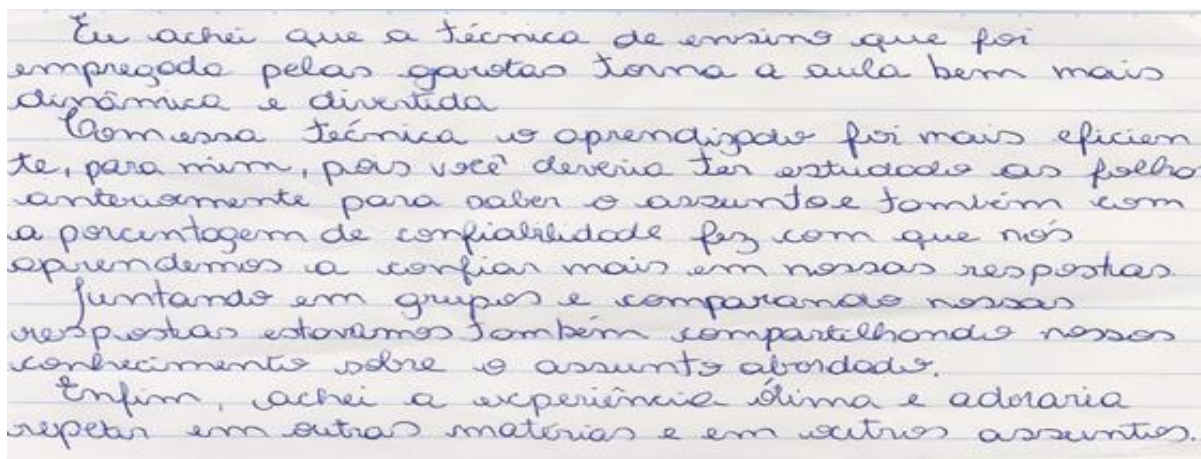 Eu achei que a técnica de ensino que foi
empregada pelas garotas torna a aula bem mais
dinâmica e divertida
Com essa técnica o aprendizado foi mais eficien
te, para mim, pois você deveria ter estudado as folha
anteriormente para saber o assunto e também com
a porcentagem de confiabilidade fez com que nós
aprendemos a confiar mais em nossas respostas
Juntando em grupos e comparando nossas
respostas estavamos também compartilhando nossos
conhecimento sobre o assunto abordado.
Enfim, achei a experiência ótima e adoraria
repetir em outras matérias e em outros assuntos.